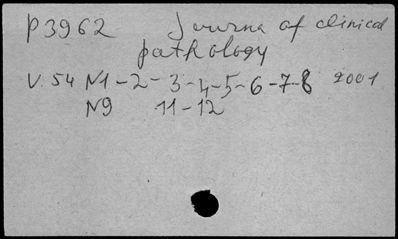 P3962 Journa of clinical
pathology
V. 54 N1-2-3-4-5-6-7-8 2001
N9 11-12